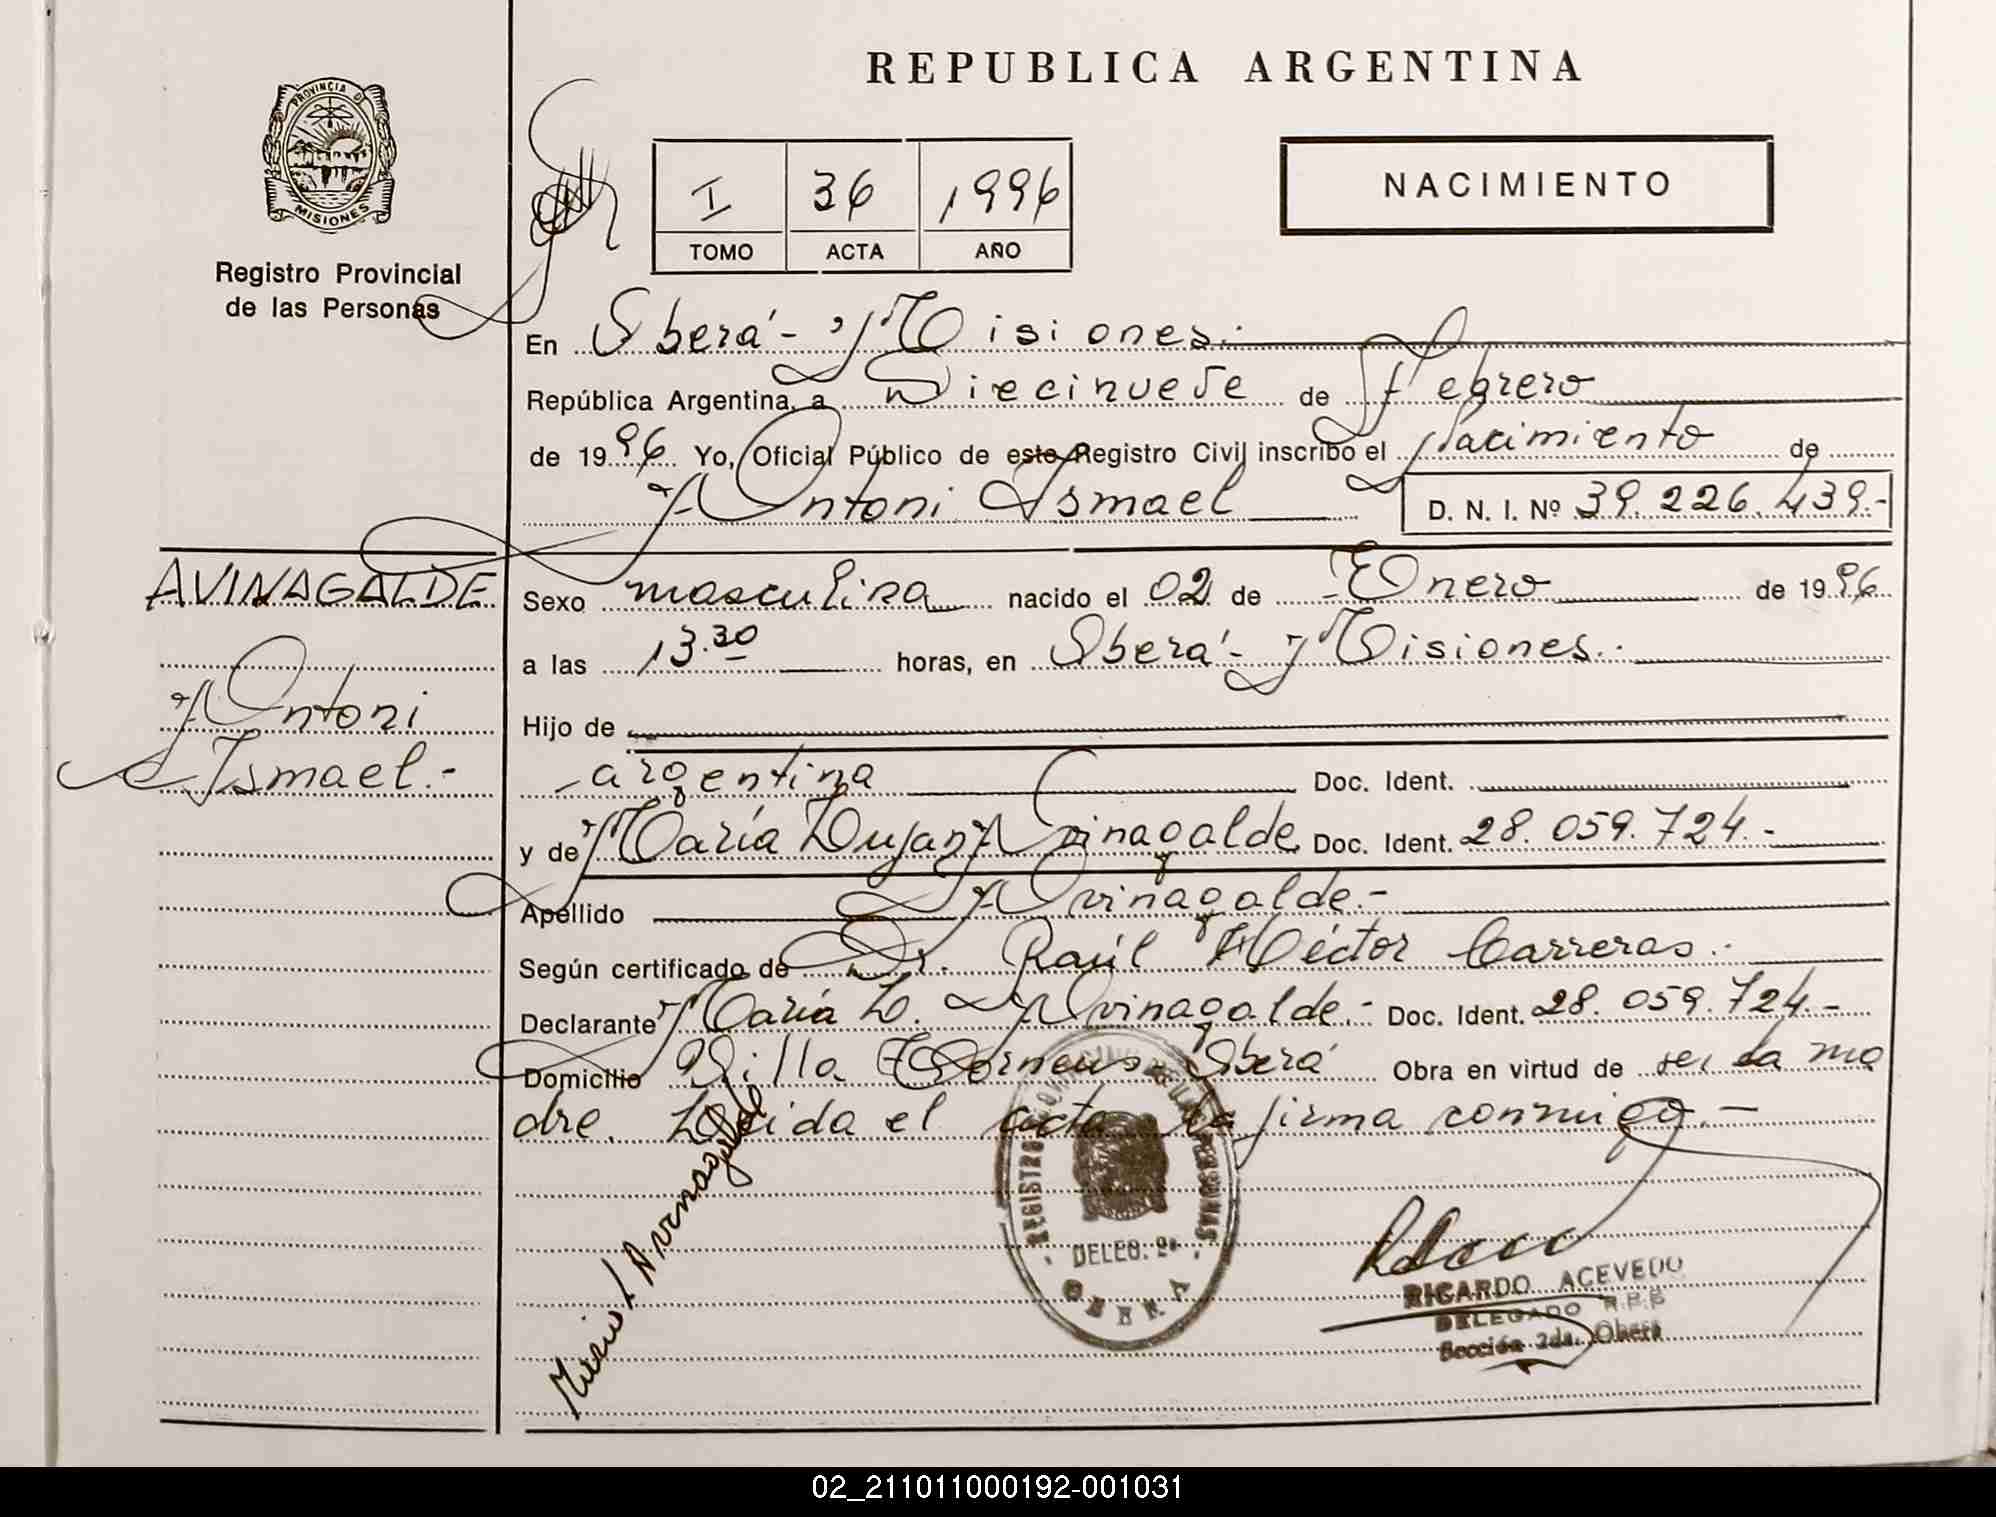 REPUBLICA ARGENTINA
PROVINCIA D
MISIONES
Registro Provincial
de las Personas
I 36 1996
TOMO ACTA AÑO
NACIMIENTO
En Oberá - Misiones.
República Argentina, a Diecinueve de Febrero
de 1996 Yo, Oficial Público de este Registro Civil inscribo el Nacimiento de
Antoni Ismael D. N. I. Nº 39.226.439.-
AVINAGALDE
Antoni
Ismael.-
Sexo masculino nacido el 02 de Enero de 1996
a las 13.30 horas, en Oberá - Misiones.
Hijo de
argentina Doc. Ident.
y de María Lujan Avinagalde Doc. Ident. 28.059.724.-
Apellido Avinagalde.-
Según certificado de Dr. Raúl Héctor Carreras.
Declarante María L. Avinagalde.- Doc. Ident. 28.059.724.-
Domicilio Villa Oberá Obra en virtud de ser la ma
dre. Leída el acta la firma conmigo.-
Avinagalde
REGISTRO
DELEG. 2ª
OBERA
RICARDO ACEVEDO
DELEGADO R.P.P
Sección 2da. Oberá
02_211011000192-001031